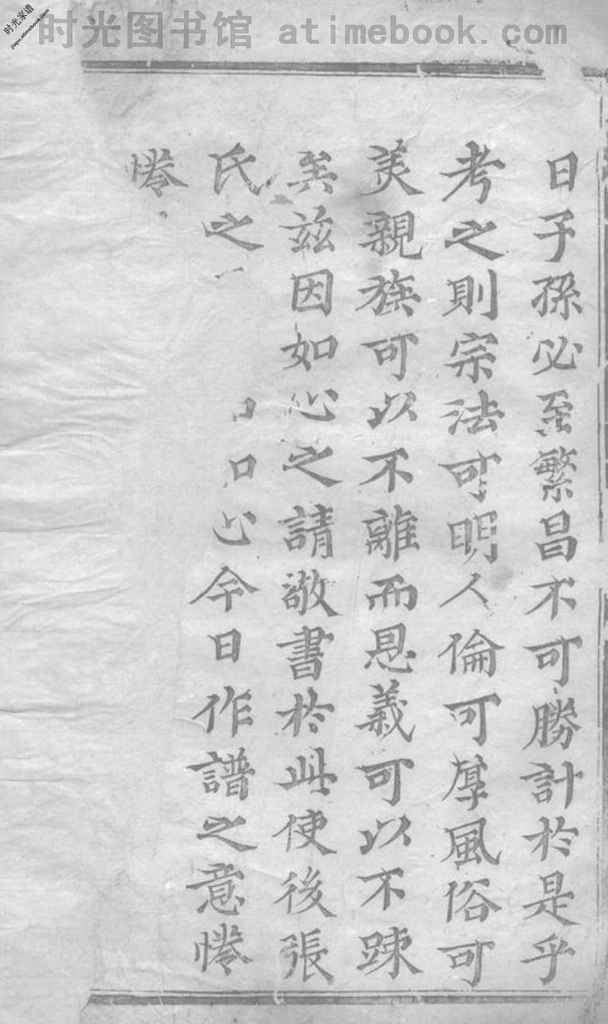 时光图书馆 atimebook.com
时光家谱
日子孫必至繁昌不可勝計於是乎
考之則宗法可明人倫可厚風俗可
美親族可以不離而恩義可以不踈
矣茲因如心之請敬書於此使後張
氏之心今日作譜之意惓
惓